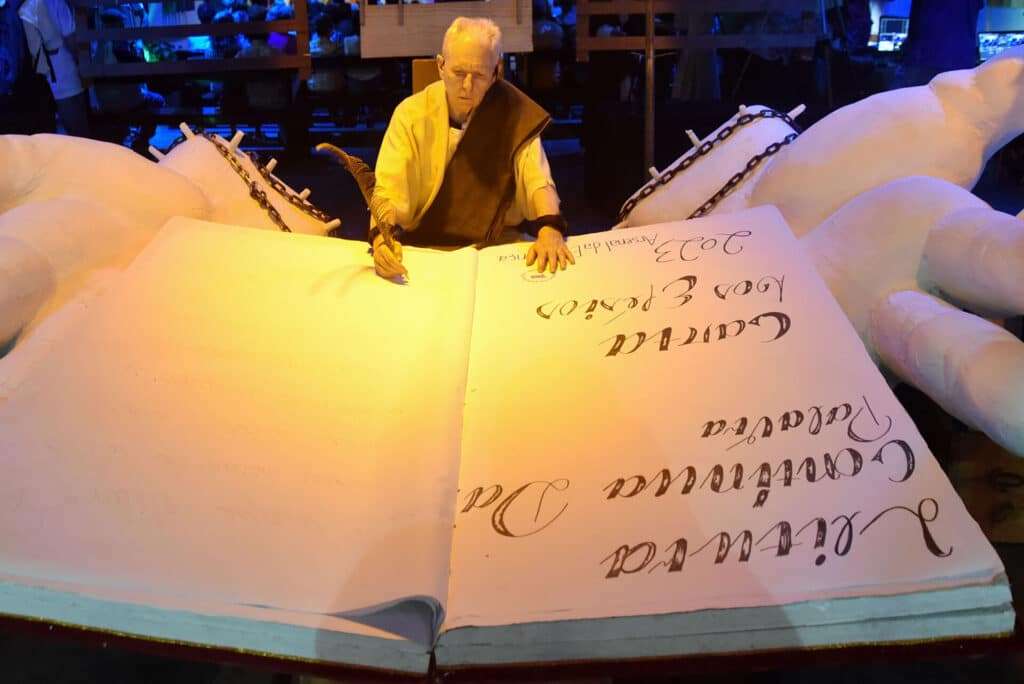 Leitura
Contínua Da
Palavra
Carta
Aos Efésios
2023 Arsenal da